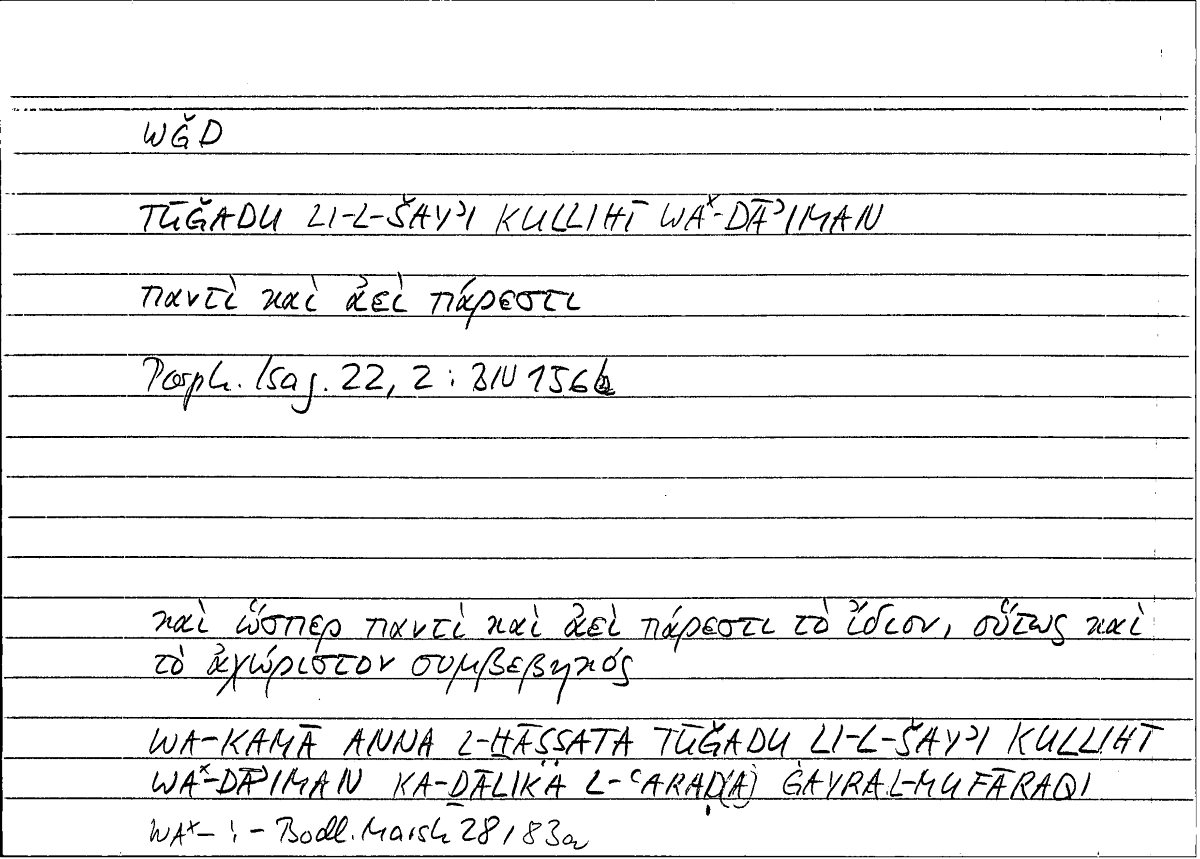 WǦD
TŪǦADU LI-L-ŠAYʾI KULLIHĪ WAˣ-DĀʾIMAN
παντὶ καὶ ἀεὶ πάρεστι
Porph. Isag. 22, 2 : BN 156b
καὶ ὥσπερ παντὶ καὶ ἀεὶ πάρεστι τὸ ἴδιον, οὕτως καὶ
τὸ ἀχώριστον συμβεβηκός
WA-KAMĀ ANNA L-ḪĀṢṢATA TŪǦADU LI-L-ŠAYʾI KULLIHĪ
WAˣ-DĀʾIMAN KA-ḎĀLIKA L-ʿARAḌ(A) ĠAYRA L-MUFĀRAQI
WAˣ- : - Bodl. Marsh 28, 83a